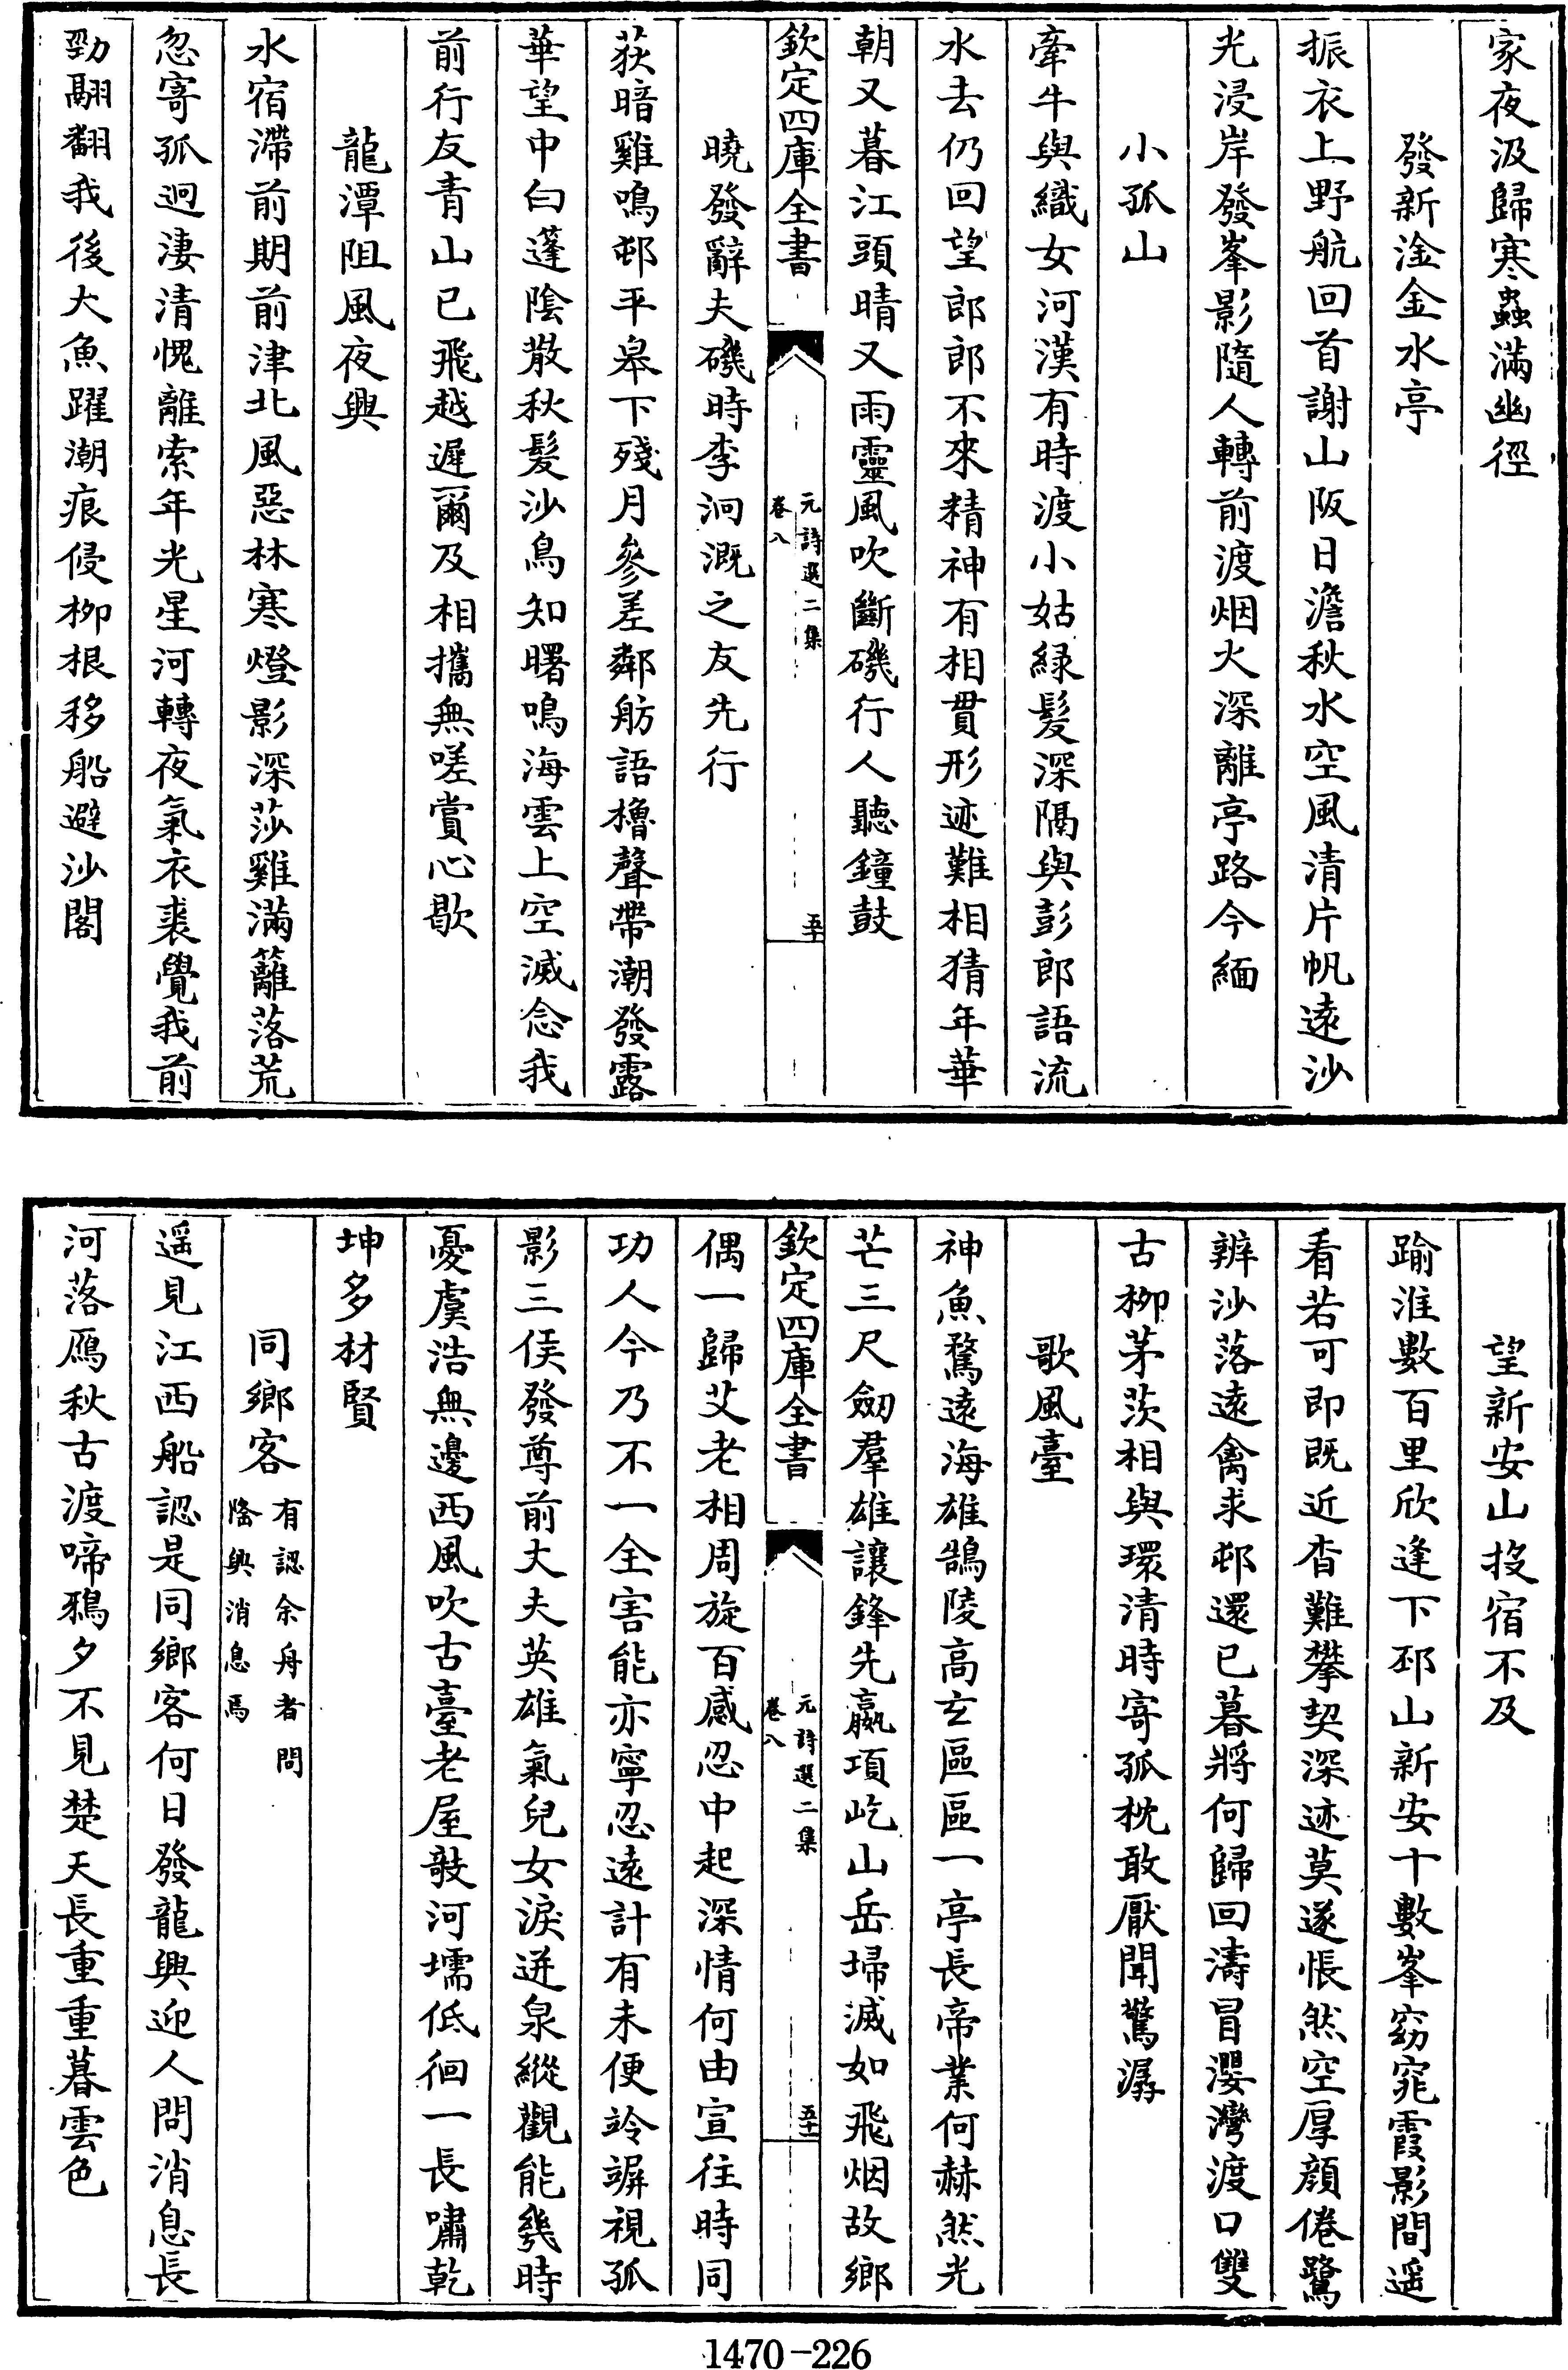 家夜汲歸寒蟲滿幽徑
發新淦金水亭
振衣上野航回首謝山阪日澹秋水空風清片帆遠沙
光浸岸發峯影隨人轉前渡烟火深離亭路今緬
小孤山
牽牛與織女河漢有時渡小姑緑髮深隔與彭郎語流
水去仍回望郎郎不來精神有相貫形迹難相猜年華
朝又暮江頭晴又雨靈風吹斷磯行人聽鐘鼓
欽定四庫全書
元詩選二集
卷八
五十
曉發辭夫磯時李泂溉之友先行
荻暗雞鳴邨平皋下殘月參差鄰舫語櫓聲帶潮發露
華望中白蓬陰散秋髮沙鳥知曙鳴海雲上空滅念我
前行友青山已飛越遲爾及相攜無嗟賞心歇
龍潭阻風夜興
水宿滯前期前津北風惡林寒燈影深莎雞滿籬落荒
忽寄孤迥淒清愧離索年光星河轉夜氣衣裘覺我前
勁翮翻我後大魚躍潮痕侵柳根移船避沙閣
望新安山投宿不及
踰淮數百里欣逢下邳山新安十數峯窈窕霞影間遥
看若可即既近杳難攀契深迹莫遂悵然空厚顔倦鷺
辨沙落遠禽求邨還已暮將何歸回濤冒灣渡口雙
古柳茅茨相與環清時寄孤枕敢厭聞驚潺
歌風臺
神魚騖遠海雄鵠陵高玄區區一亭長帝業何赫然光
芒三尺劒羣雄讓鋒先嬴項屹山岳埽滅如飛烟故鄉
欽定四庫全書
元詩選二集
卷八
五十一
偶一歸父老相周旋百感忍中起深情何由宣往時同
功人今乃不一全害能亦寧忍遠計有未便竛竮視孤
影三侯發尊前丈夫英雄氣兒女淚迸泉縱觀能幾時
憂虞浩無邊西風吹古臺老屋敧河壖低徊一長嘯乾
坤多材賢
同鄉客
有認余舟者問
隆興消息焉
遥見江西船認是同鄉客何日發龍興迎人問消息長
河落鴈秋古渡啼鴉夕不見楚天長重重暮雲色
1470-226